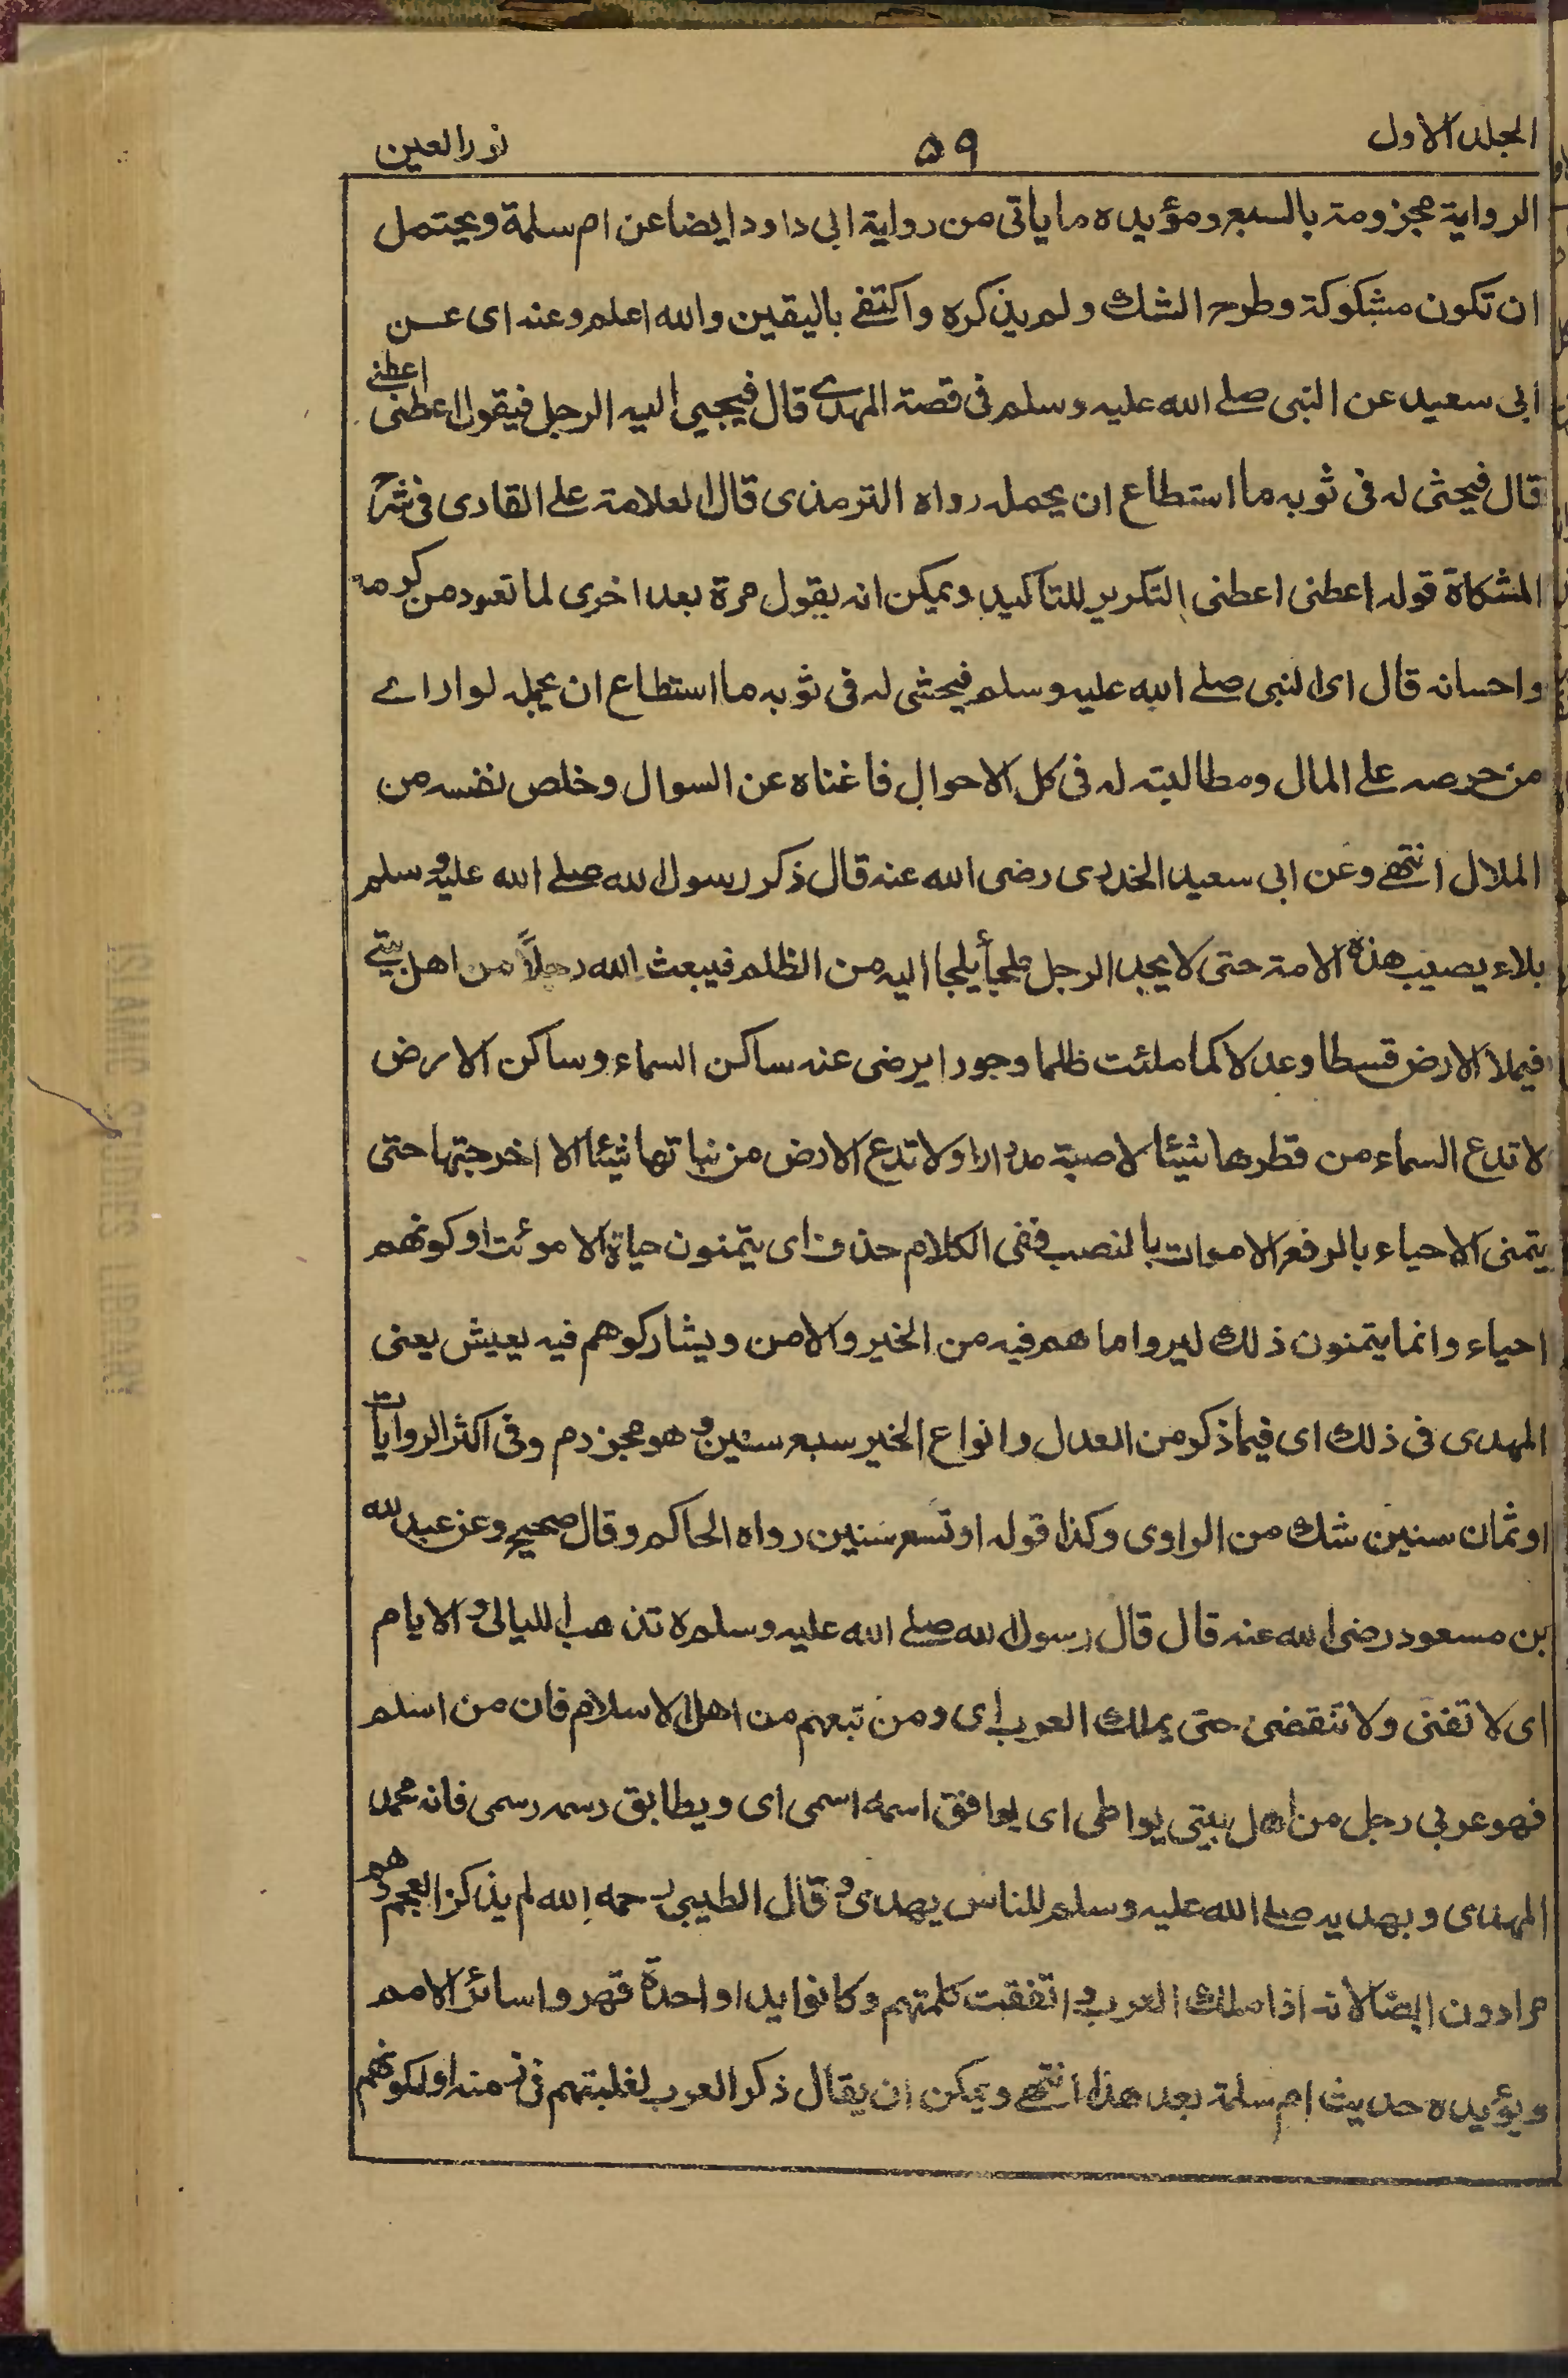 الجلد الاول ۵۹ نور العين
الرواية مجزومة بالسبع ومؤيده ما ياتى من رواية ابى داود ايضا عن ام سلمة ويحتمل
ان تكون مشكوكة وطرح الشك ولم يذكره واكتفى باليقين والله اعلم وعنه اى عن
ابى سعيد عن النبى صلے الله عليه وسلم فى قصة المهدے قال فيجيى اليه الرجل فيقول اعطنى اعطنے
قال فيحثى له فى ثوبه ما استطاع ان يحمله رواه الترمذى قال العلامة على القادى فى شرح
المشكاة قوله اعطنى اعطنى التكرير للتاكيد ويمكن انه يقول مرة بعد اخرى لما تعود من كرمه
واحسانه قال اى النبى صلے الله عليه وسلم فيحثى له فى ثوبه ما استطاع ان يحمله لو اراے
من حرصه على المال ومطالبته له فى كل الاحوال فاغناه عن السوال وخلص نفسه من
الملال انتهے وعن ابى سعيد الخدرى رضى الله عنه قال ذكر رسول الله صلے الله عليه وسلم
بلاء يصيب هذه الامة حتى لا يجد الرجل ملجأ يلجا اليه من الظلم فيبعث الله رجلاً من اهل بيتے
فيملا الارض قسطا وعدلا كما ملئت ظلما وجورا يرضى عنه ساكن السماء وساكن الارض
لا تدع السماء من قطرها شيئا لا صبة مدرارا ولا تدع الارض من نباتها شيئا الا اخرجتها حتى
يتمنى الاحياء بالرفع الاموات بالنصب ففى الكلام حذف اى يتمنون حياة الاموئت او كونهم
احياء وانما يتمنون ذلك ليروا ما هم فيه من الخير والامن ويشاركوهم فيه يعيش يعنى
المهدى فى ذلك اى فيما ذكر من العدل وانواع الخير سبع سنين وهو مجزدم وفى اكثر الروايات
او ثمان سنين شك من الراوى وكذا قوله او تسع سنين رواه الحاكم وقال صحيح وعن عبد الله
بن مسعود رضى الله عنه قال قال رسول الله صلے الله عليه وسلم ه تذهب الليالى والايام
اى لا تفنى ولا تنقضى حتى يملك العرب اى ومن تبعهم من اهل الاسلام فان من اسلم
فهو عربى رجل من اهل بيتى يواطى اى يوافق اسمه اسمى اى ويطابق رسمه رسمى فانه محمد
المهدى وبهديه صلے الله عليه وسلم للناس يهدى و قال الطيبى رحمه الله لم يذكر العجم وهم
مرادون ايضا لانه اذا ملك العرب و اتفقت كلمتهم وكانوا يدا واحدة قهروا سائر الامم
ويؤيده حديث ام سلمة بعد هذا انتهے ويمكن ان يقال ذكر العرب لغلبتهم فى زمنه او لكونهم
ISLAMIC STUDIES LIBRARY